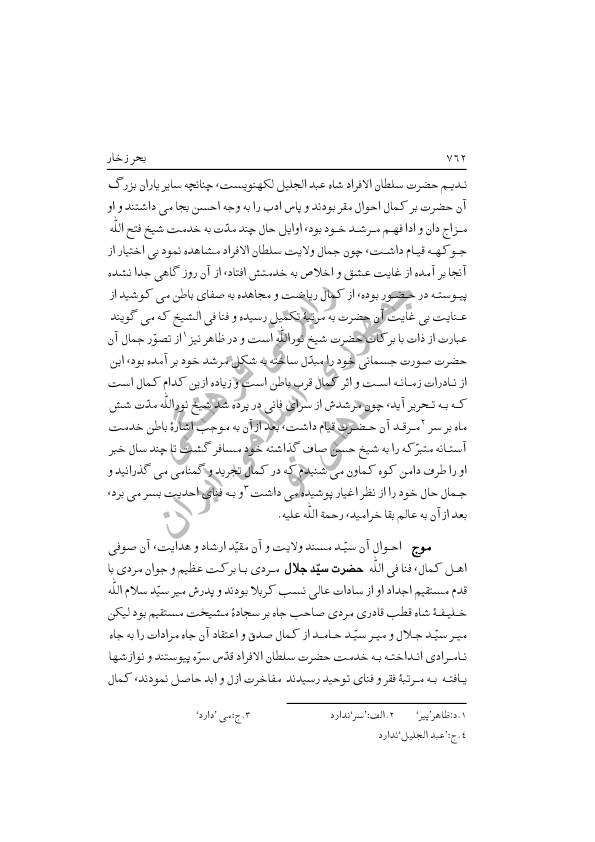 ۷۶۲
بحر زخار
ندیم حضرت سلطان الافراد شاه عبد الجلیل لکهنویست، چنانچه سایر یاران بزرگ
آن حضرت بر کمال احوال مقر بودند و پاس ادب را به وجه احسن بجا می داشتند و او
مزاج دان و ادا فهم مرشد خود بود، اوایل حال چند مدّت به خدمت شیخ فتح الله
جوکهه قیام داشت، چون جمال ولایت سلطان الافراد مشاهده نمود بی اختیار از
آنجا بر آمده از غایت عشق و اخلاص به خدمتش افتاد، از آن روز گاهی جدا نشده
پیوسته در حضور بوده، از کمال ریاضت و مجاهده به صفای باطن می کوشید از
عنایت بی غایت آن حضرت به مرتبهٔ تکمیل رسیده و فنا فی الشیخ که می گویند
عبارت از ذات با برکات حضرت شیخ نورالله است و در ظاهر نیز۱ از تصوّر جمال آن
حضرت صورت جسمانی خود را مبدّل ساخته به شکل مرشد خود بر آمده بود، این
از نادرات زمانه است و اثر کمال قرب باطن است و زیاده ازین کدام کمال است
که به تحریر آید، چون مرشدش از سرای فانی در پرده شد شیخ نورالله مدّت شش
ماه بر سر۲ مرقد آن حضرت قیام داشت، بعد از آن به موجب اشارهٔ باطن خدمت
آستانه متبرّکه را به شیخ حسن صاف گذاشته خود مسافر گشت تا چند سال خبر
او را طرف دامن کوه کماون می شنیدم که در کمال تجرید و گمنامی می گذرانید و
جمال حال خود را از نظر اغیار پوشیده می داشت۳ و به فنای احدیت بسر می برد،
بعد از آن به عالم بقا خرامید، رحمة الله علیه.
موج احوال آن سیّد مسند ولایت و آن مقیّد ارشاد و هدایت، آن صوفی
اهل کمال، فنا فی الله حضرت سیّد جلال مردی با برکت عظیم و جوان مردی با
قدم مستقیم اجداد او از سادات عالی نسب کربلا بودند و پدرش میر سیّد سلام الله
خلیفهٔ شاه قطب قادری مردی صاحب جاه بر سجادهٔ مشیخت مستقیم بود لیکن
میر سیّد جلال و میر سیّد حامد از کمال صدق و اعتقاد آن جاه مرادات را به جاه
نامرادی انداخته به خدمت حضرت سلطان الافراد قدّس سرّه پیوستند و نوازشها
یافته به مرتبهٔ فقر و فنای توحید رسیدند مفاخرت ازل و ابد حاصل نمودند، کمال
۱.د:ظاهر’پیر‘ ۲.الف:’سر‘ندارد ۳.ج:می ’دارد‘
۴.ج:’عبد الجلیل‘ندارد
رایزنی فرهنگی
جمهوری اسلامی ایران
دهلی نو